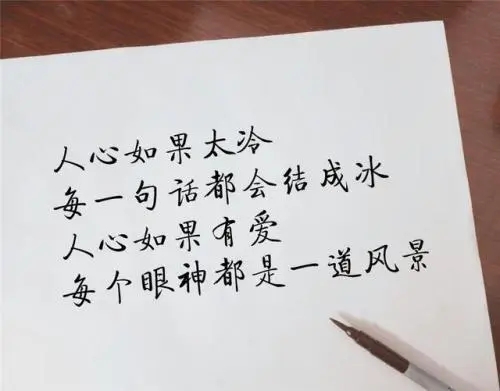 人心如果太冷
每一句话都会结成冰
人心如果有爱
每个眼神都是一道风景